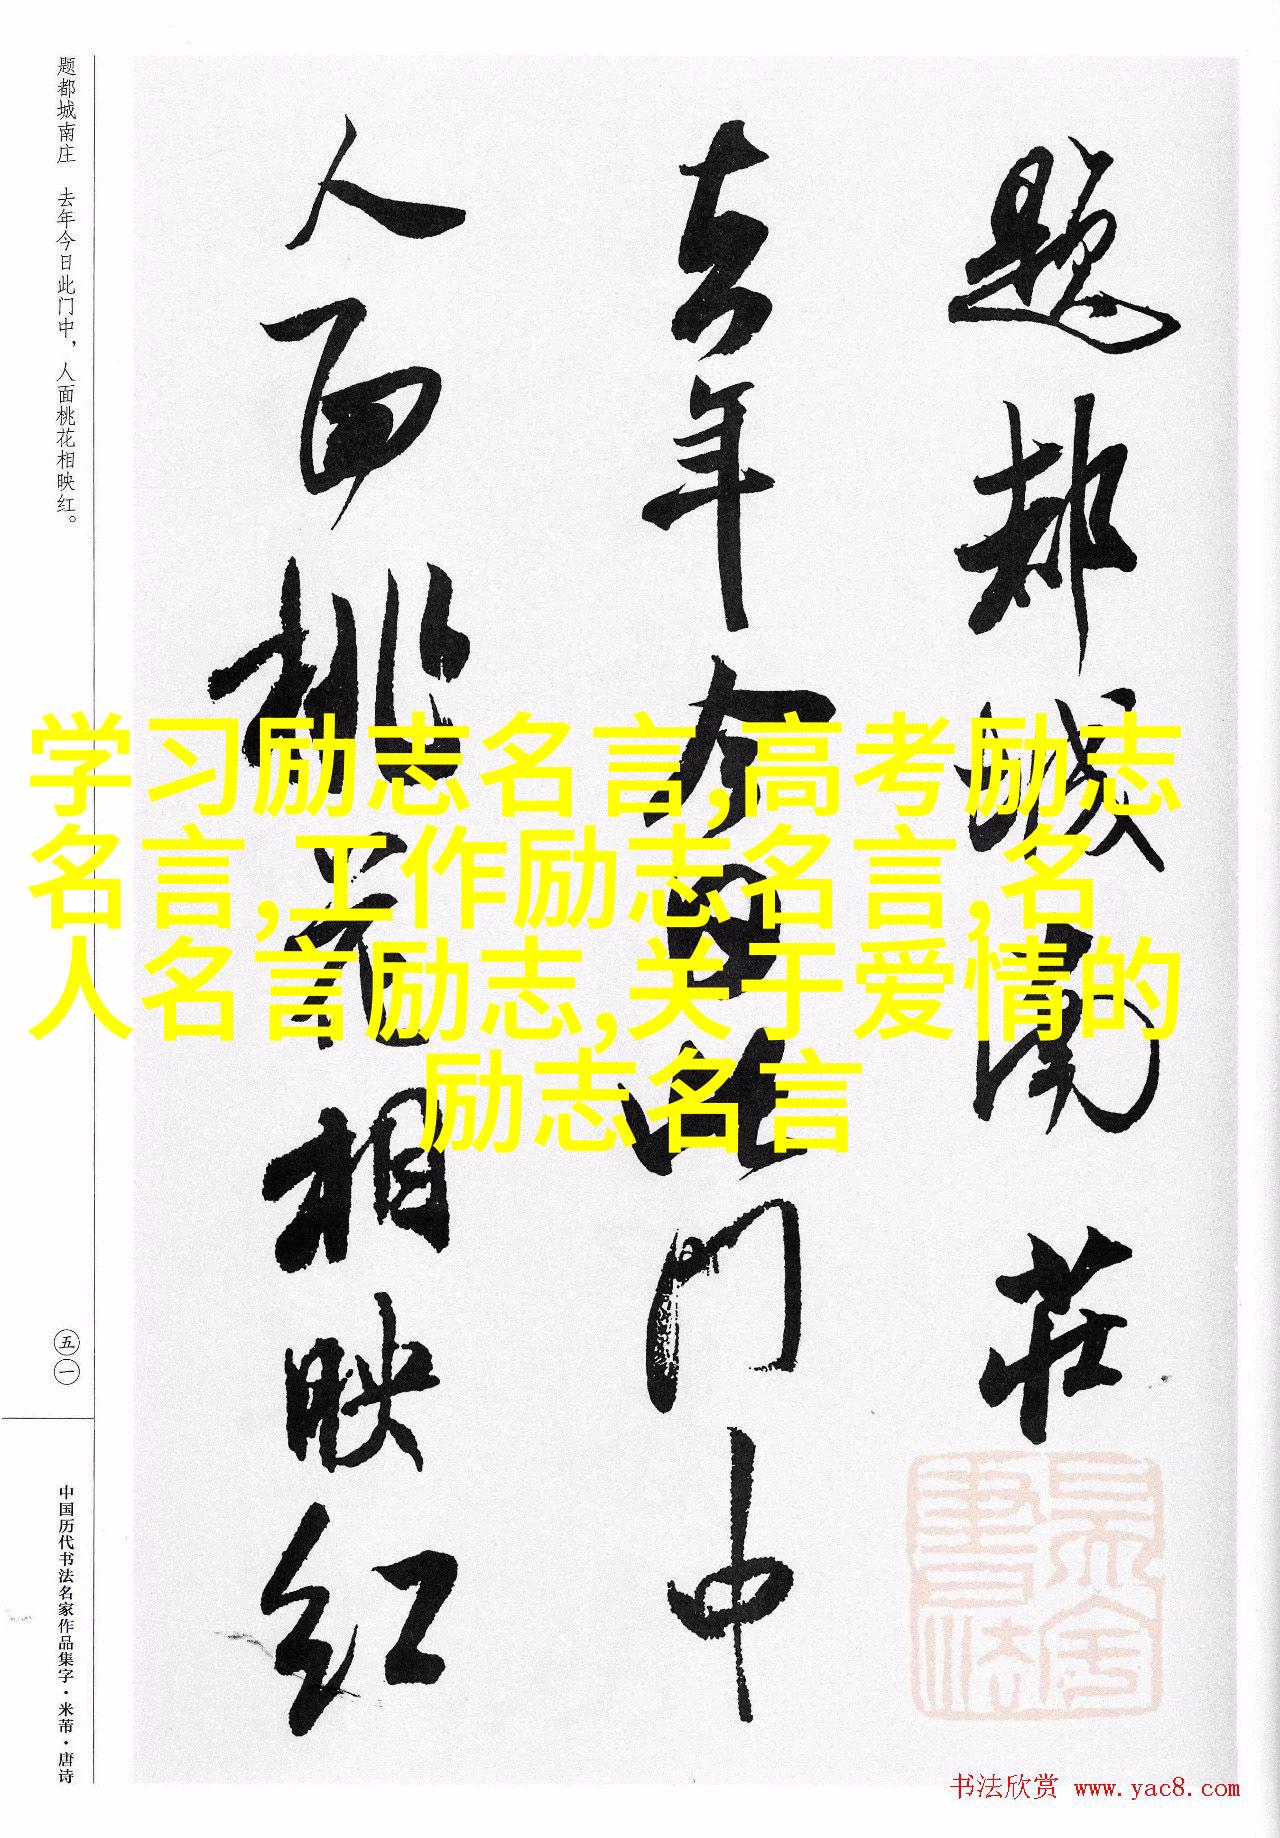 题都城南莊
去年今日此门中
人面桃花相映红
题都城南庄 去年今日此门中，人面桃花相映红。
五一
中国历代书法名家作品集字·米芾·唐诗
学习励志名言,高考励志
名言,工作励志名言,名
人名言励志,关于爱情的
励志名言
书法欣赏 www.yac8.com